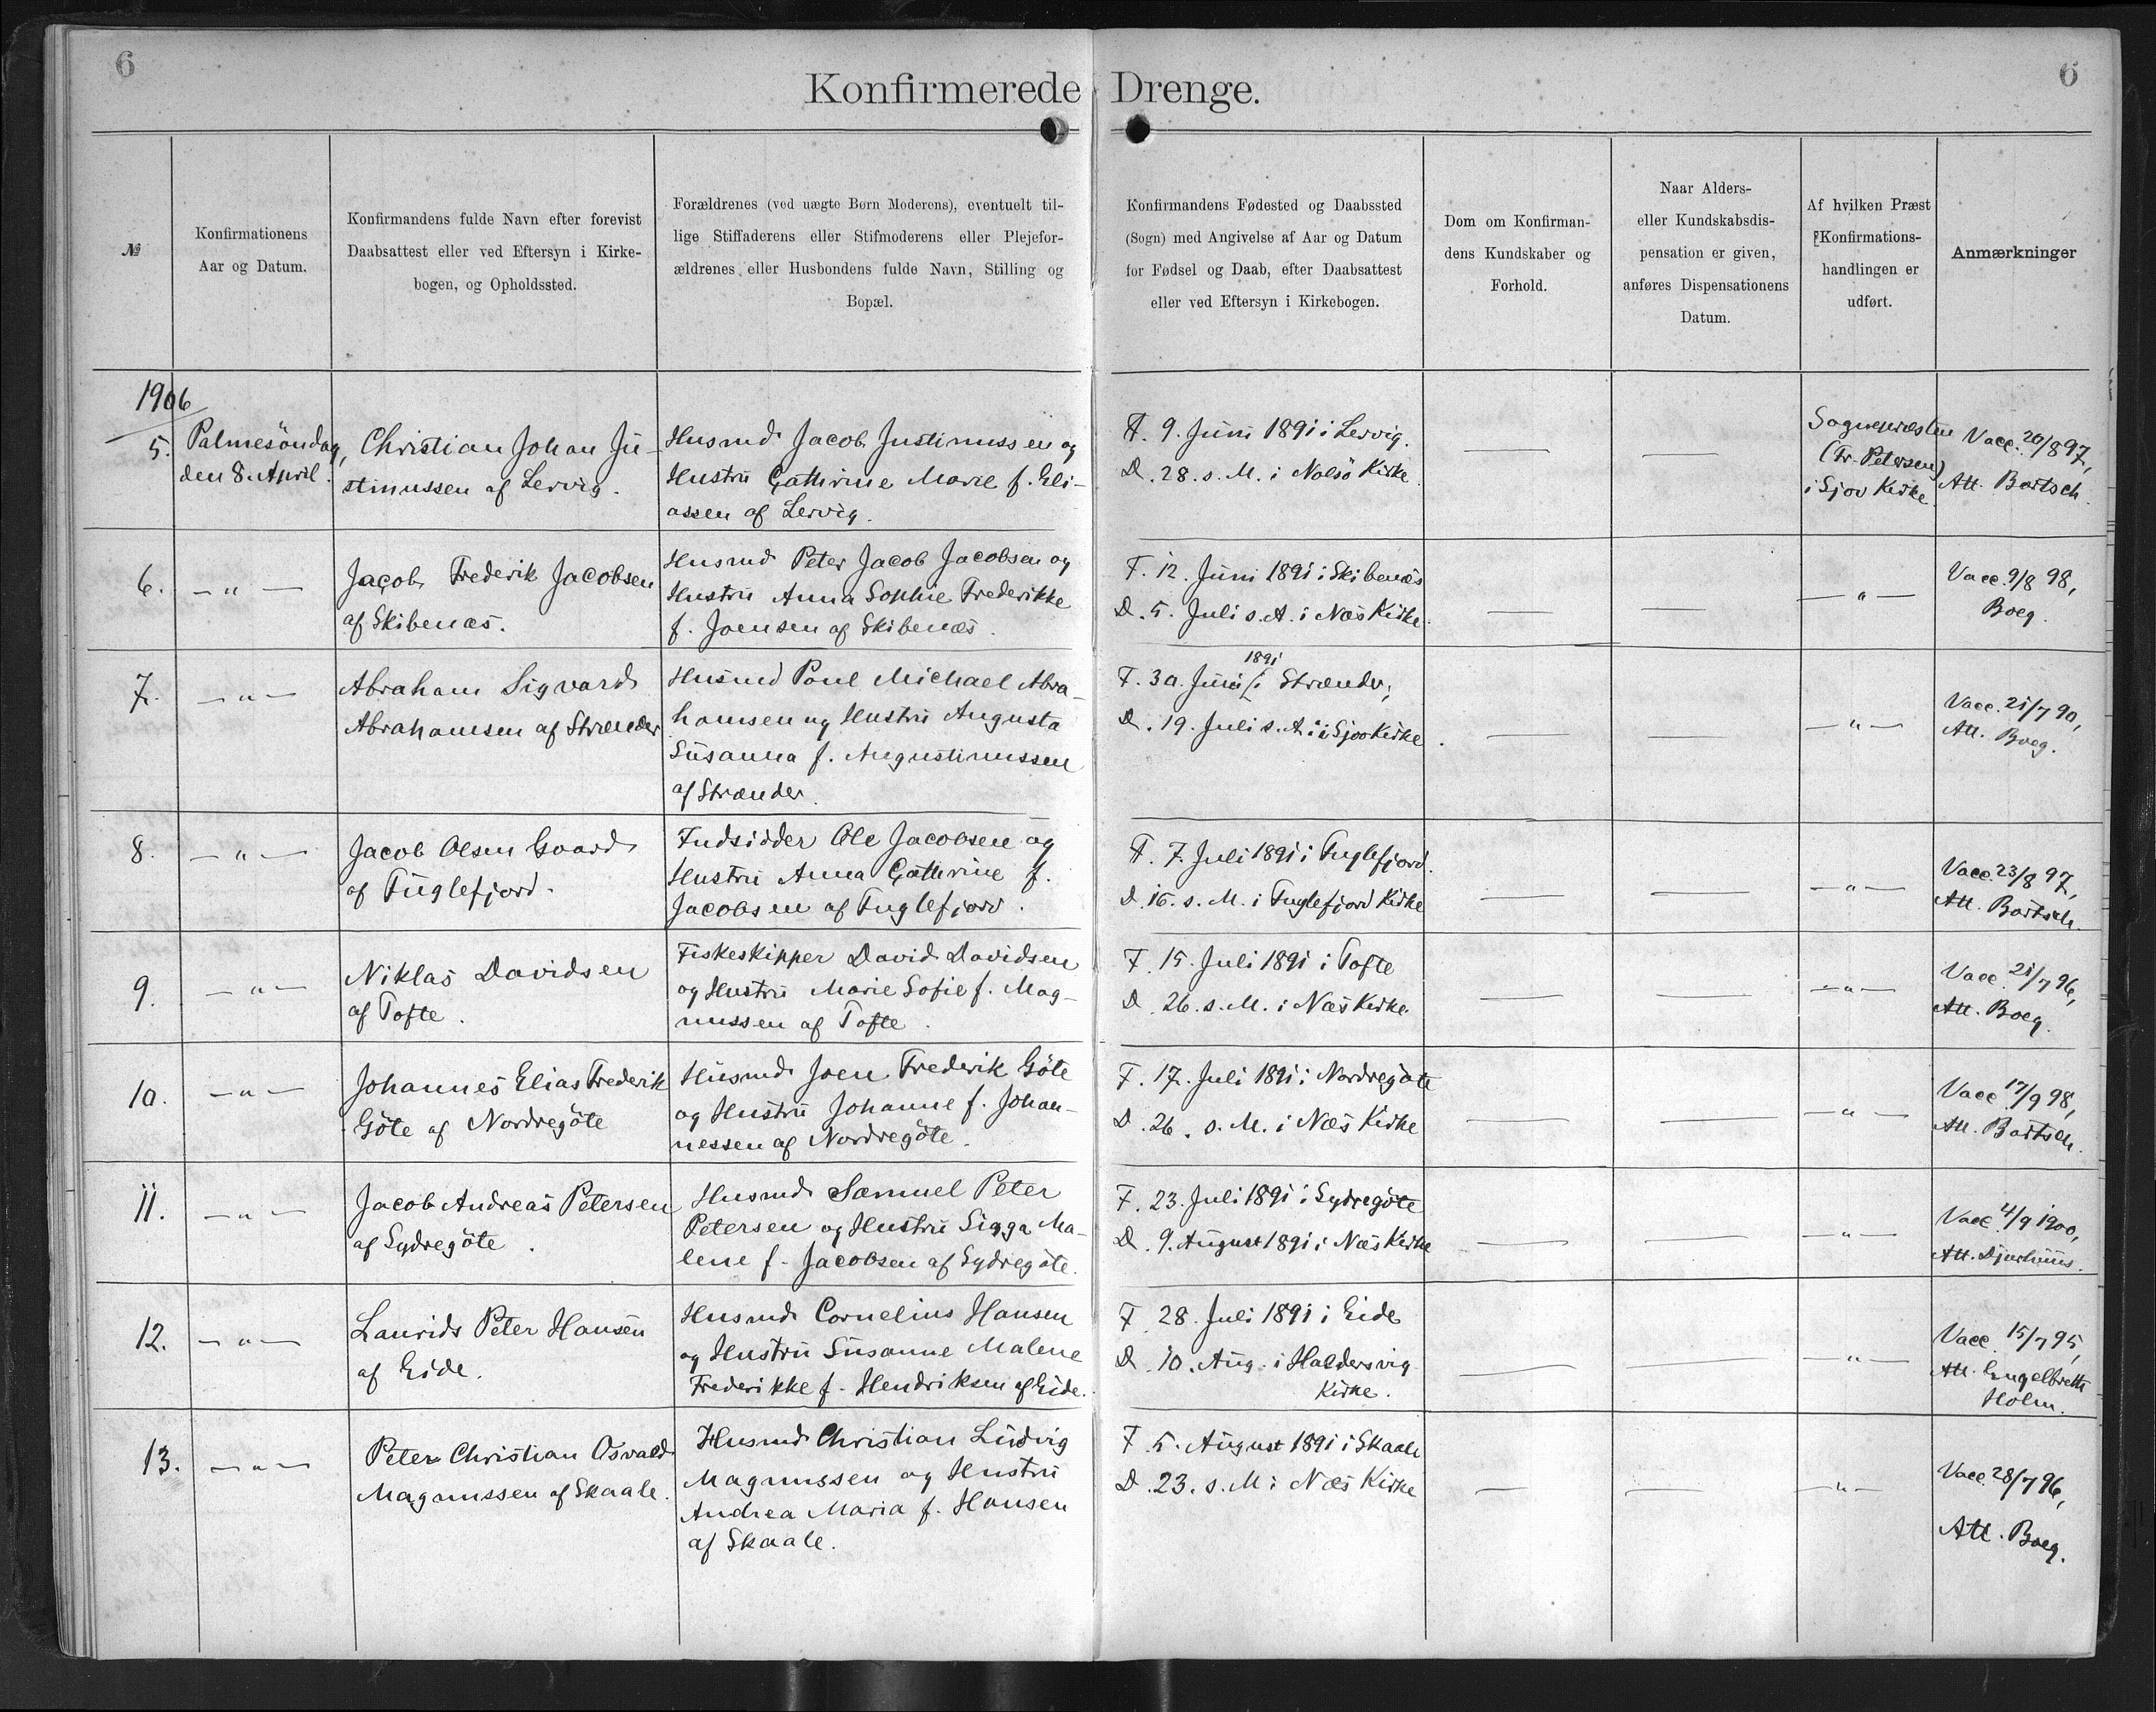 6
6
Konfirmerede Drenge.
№
Konfirmationens
Aar og Datum.
Konfirmandens fulde Navn efter forevist
Daabsattest eller ved Eftersyn i Kirke-
bogen, og Opholdssted.
Forældrenes (ved uægte Børn Moderens), eventuelt til-
lige Stiffaderens eller Stifmoderens eller Plejefor-
ældrenes eller Husbondens fulde Navn, Stilling og
Bopæl.
Konfirmandens Fødested og Daabssted
(Sogn) med Angivelse af Aar og Datum
for Fødsel og Daab, efter Daabsattest
eller ved Eftersyn i Kirkebogen.
Dom om Konfirman-
dens Kundskaber og
Forhold.
Naar Alders-
eller Kundskabsdis-
pensation er given,
anføres Dispensationens
Datum.
Af hvilken Præst
Konfirmations-
handlingen er
udført.
Anmærkninger
1906
5.
Palmesöndag,
den 8. April.
Christian Johan Ju-
stinussen af Lervig.
Husmd Jacob Justinussen og
Hustru Cathrine Marie f. Eli-
assen af Lervig.
F. 9. Juni 1891 i Lervig.
D. 28. s. M. i Nolsö Kirke.
—
—
Sognepræsten
(Fr. Petersen)
i Sjov Kirke.
Vacc. 20/8 97,
Att. Bartsch.
6.
— " —
Jacob Frederik Jacobsen
af Skibenæs.
Husmd Peter Jacob Jacobsen og
Hustru Anna Sophie Frederikke
f. Joensen af Skibenæs.
F. 12. Juni 1891 i Skibenæs
D. 5. Juli s. A. i Næs Kirke.
—
—
— " —
Vacc. 9/8 98,
Boeg.
7.
— " —
Abraham Sigvard
Abrahamsen af Strænder
Husmd Poul Michael Abra-
hamsen og Hustru Augusta
Susanna f. Augustinussen
af Strænder.
1891
F. 30. Juni / i Strænder,
D. 19. Juli s. A. i Sjov Kirke.
—
—
— " —
Vacc. 21/7 90,
Att. Boeg.
8.
— " —
Jacob Olsen Gaard
af Fuglefjord.
Indsidder Ole Jacobsen og
Hustru Anna Cathrine f.
Jacobsen af Fuglefjord.
F. 7. Juli 1891 i Fuglefjord.
D. 16. s. M. i Fuglefjord Kirke
—
—
— " —
Vacc. 23/8 97,
Att. Bartsch.
9.
— " —
Niklas Davidsen
af Tofte.
Fiskeskipper David Davidsen
og Hustru Marie Sofie f. Mag-
nussen af Tofte.
F. 15. Juli 1891 i Tofte
D. 26. s. M. i Næs Kirke.
—
—
— " —
Vacc. 21/7 96,
Att. Boeg.
10.
— " —
Johannes Elias Frederik
Göte af Nordregöte
Husmd Joen Frederik Göte
og Hustru Johanne f. Johan-
nessen af Nordregöte.
F. 17. Juli 1891 i Nordregöte
D. 26. s. M. i Næs Kirke
—
—
— " —
Vacc. 17/9 98,
Att. Bartsch.
11.
— " —
Jacob Andreas Petersen
af Sydregöte.
Husmd Samuel Peter
Petersen og Hustru Sigga Ma-
lene f. Jacobsen af Sydregöte.
F. 23. Juli 1891 i Sydregöte
D. 9. August 1891 i Næs Kirke
—
—
— " —
Vacc. 4/9 1900,
Att. Djurhuus.
12.
— " —
Laurids Peter Hansen
af Eide.
Husmd Cornelius Hansen
og Hustru Susanne Malene
Frederikke f. Hendriksen af Eide.
F. 28. Juli 1891 i Eide
D. 10. Aug. i Haldersvig
Kirke.
—
—
— " —
Vacc. 15/7 95,
Att. Engelbreth
Holm.
13.
— " —
Peter Christian Osvald
Magnussen af Skaale.
Husmd Christian Ludvig
Magnussen og Hustru
Andrea Maria f. Hansen
af Skaale.
F. 5. August 1891 i Skaale
D. 23. s. M. i Næs Kirke
—
—
— " —
Vacc. 28/7 96,
Att. Boeg.